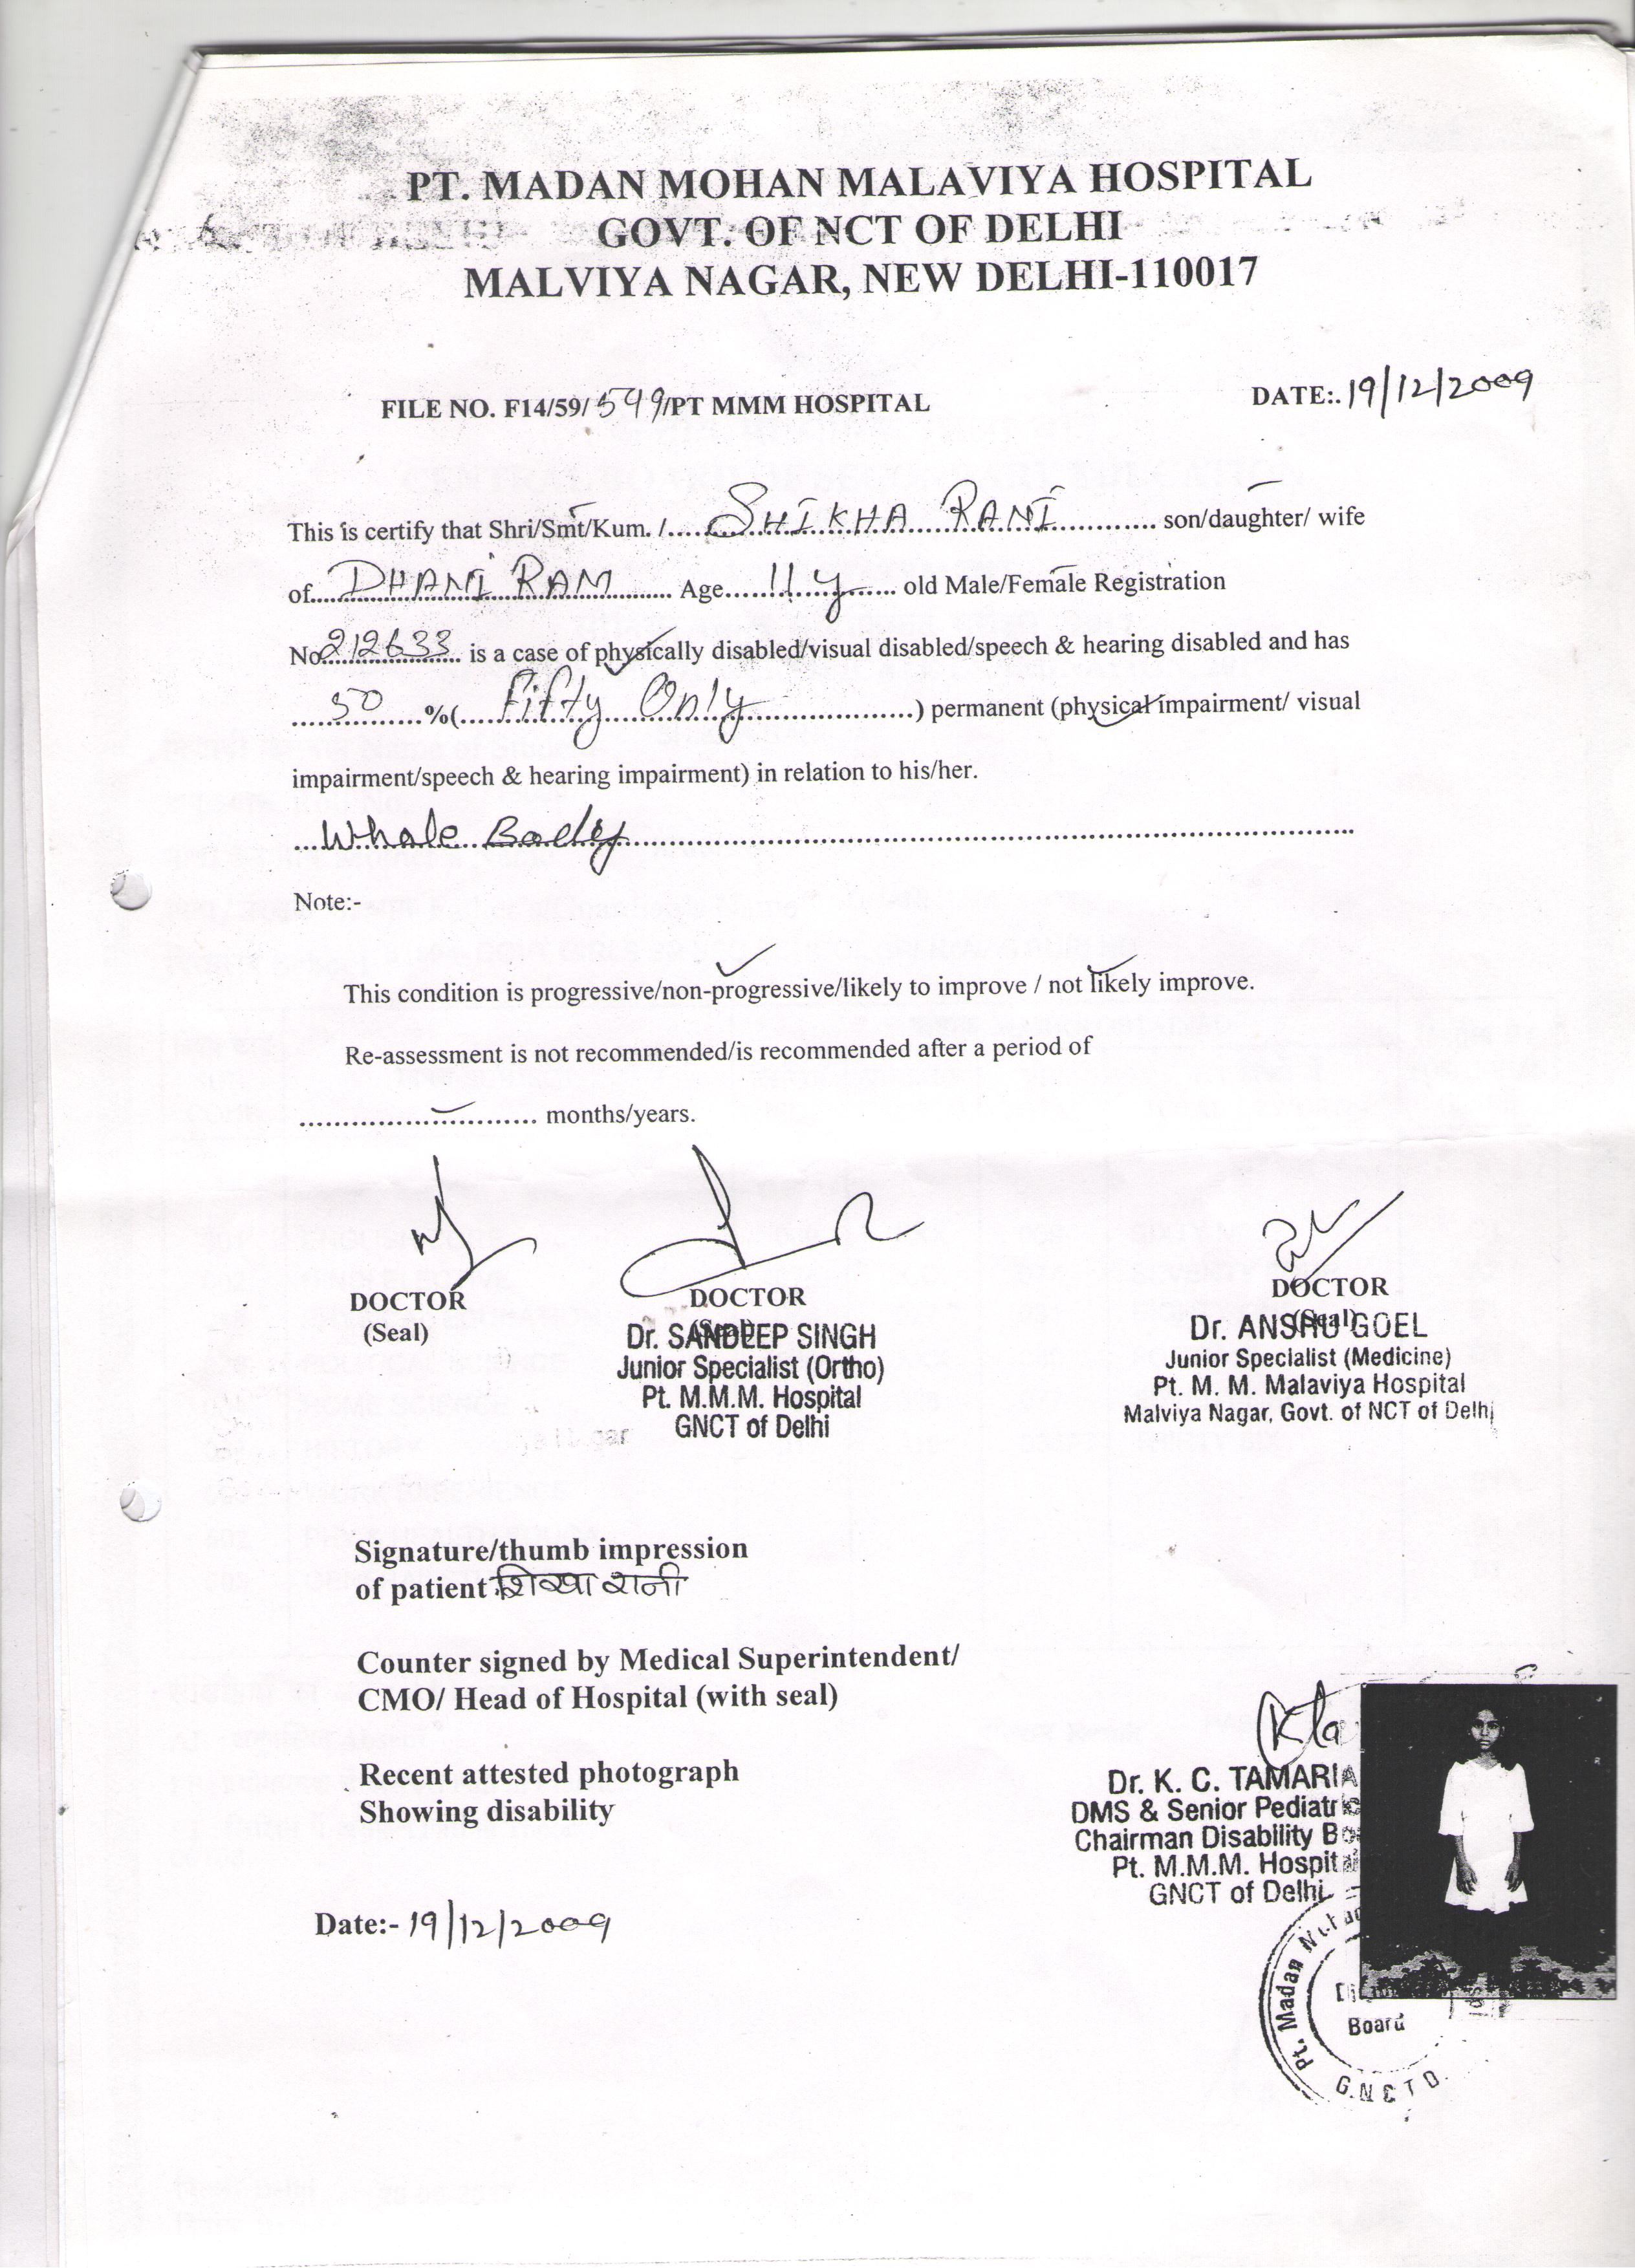 PT. MADAN MOHAN MALAVIYA HOSPITAL
GOVT. OF NCT OF DELHI
MALVIYA NAGAR, NEW DELHI-110017
FILE NO. F14/59/549/PT MMM HOSPITAL DATE:. 19/12/2009
This is certify that Shri/Smt/Kum. /.....SHIKHA RANI............ son/daughter/ wife
of....DHANI RAM........ Age......11 y...... old Male/Female Registration
No.212633....... is a case of physically disabled/visual disabled/speech & hearing disabled and has
......50......%(....Fifty Only....................) permanent (physical impairment/ visual
impairment/speech & hearing impairment) in relation to his/her.
...Whole Body..................................................
Note:-
This condition is progressive/non-progressive/likely to improve / not likely improve.
Re-assessment is not recommended/is recommended after a period of
.............................. months/years.
DOCTOR DOCTOR DOCTOR
(Seal) (Seal) (Seal)
Dr. SANDEEP SINGH
Junior Specialist (Ortho)
Pt. M.M.M. Hospital
GNCT of Delhi
Dr. ANSHU GOEL
Junior Specialist (Medicine)
Pt. M. M. Malaviya Hospital
Malviya Nagar, Govt. of NCT of Delhi
Signature/thumb impression
of patient शिखा रानी
Counter signed by Medical Superintendent/
CMO/ Head of Hospital (with seal)
Recent attested photograph
Showing disability
Dr. K. C. TAMARIA
DMS & Senior Pediatric
Chairman Disability Bo
Pt. M.M.M. Hospita
GNCT of Delhi
Date:- 19/12/2009
Pt. Madan Mohan
Board
G.N.C.T.D.